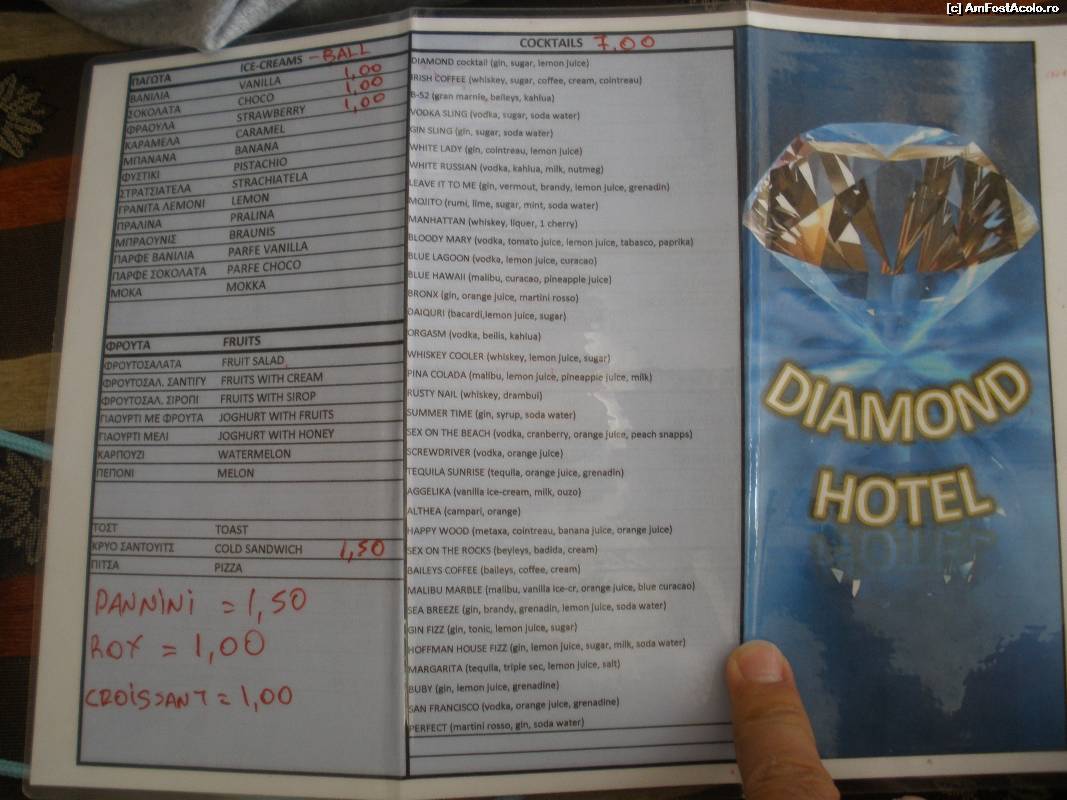 [c] AmFostAcolo.ro
ΠΑΓΩΤΑ ICE-CREAMS - BALL
ΒΑΝΙΛΙΑ VANILLA 1,00
ΣΟΚΟΛΑΤΑ CHOCO 1,00
ΦΡΑΟΥΛΑ STRAWBERRY 1,00
ΚΑΡΑΜΕΛΑ CARAMEL
ΜΠΑΝΑΝΑ BANANA
ΦΥΣΤΙΚΙ PISTACHIO
ΣΤΡΑΤΣΙΑΤΕΛΑ STRACHIATELA
ΓΡΑΝΙΤΑ ΛΕΜΟΝΙ LEMON
ΠΡΑΛΙΝΑ PRALINA
ΜΠΡΑΟΥΝΙΣ BRAUNIS
ΠΑΡΦΕ ΒΑΝΙΛΙΑ PARFE VANILLA
ΠΑΡΦΕ ΣΟΚΟΛΑΤΑ PARFE CHOCO
ΜΟΚΑ MOKKA
ΦΡΟΥΤΑ FRUITS
ΦΡΟΥΤΟΣΑΛΑΤΑ FRUIT SALAD
ΦΡΟΥΤΟΣΑΛ. ΣΑΝΤΙΓΥ FRUITS WITH CREAM
ΦΡΟΥΤΟΣΑΛ. ΣΙΡΟΠΙ FRUITS WITH SIROP
ΓΙΑΟΥΡΤΙ ΜΕ ΦΡΟΥΤΑ JOGHURT WITH FRUITS
ΓΙΑΟΥΡΤΙ ΜΕΛΙ JOGHURT WITH HONEY
ΚΑΡΠΟΥΖΙ WATERMELON
ΠΕΠΟΝΙ MELON
ΤΟΣΤ TOAST
ΚΡΥΟ ΣΑΝΤΟΥΙΤΣ COLD SANDWICH 1,50
ΠΙΤΣΑ PIZZA
PANNINI = 1,50
ROY = 1,00
CROISSANT = 1,00
COCKTAILS 7,00
DIAMOND cocktail (gin, sugar, lemon juice)
IRISH COFFEE (whiskey, sugar, coffee, cream, cointreau)
B-52 (gran marnie, beileys, kahlua)
VODKA SLING (vodka, sugar, soda water)
GIN SLING (gin, sugar, soda water)
WHITE LADY (gin, cointreau, lemon juice)
WHITE RUSSIAN (vodka, kahlua, milk, nutmeg)
LEAVE IT TO ME (gin, vermout, brandy, lemon juice, grenadin)
MOJITO (rumi, lime, sugar, mint, soda water)
MANHATTAN (whiskey, liquer, 1 cherry)
BLOODY MARY (vodka, tomato juice, lemon juice, tabasco, paprika)
BLUE LAGOON (vodka, lemon juice, curacao)
BLUE HAWAII (malibu, curacao, pineapple juice)
BRONX (gin, orange juice, martini rosso)
DAIQURI (bacardi,lemon juice, sugar)
ORGASM (vodka, beilis, kahlua)
WHISKEY COOLER (whiskey, lemon juice, sugar)
PINA COLADA (malibu, lemon juice, pineapple juice, milk)
RUSTY NAIL (whiskey, drambui)
SUMMER TIME (gin, syrup, soda water)
SEX ON THE BEACH (vodka, cranberry, orange juice, peach snapps)
SCREWDRIVER (vodka, orange juice)
TEQUILA SUNRISE (tequila, orange juice, grenadin)
AGGELIKA (vanilla ice-cream, milk, ouzo)
ALTHEA (campari, orange)
HAPPY WOOD (metaxa, cointreau, banana juice, orange juice)
SEX ON THE ROCKS (beyleys, badida, cream)
BAILEYS COFFEE (baileys, coffee, cream)
MALIBU MARBLE (malibu, vanilla ice-cr, orange juice, blue curacao)
SEA BREEZE (gin, brandy, grenadin, lemon juice, soda water)
GIN FIZZ (gin, tonic, lemon juice, sugar)
HOFFMAN HOUSE FIZZ (gin, lemon juice, sugar, milk, soda water)
MARGARITA (tequila, triple sec, lemon juice, salt)
BUBY (gin, lemon juice, grenadine)
SAN FRANCISCO (vodka, orange juice, grenadine)
PERFECT (martini rosso, gin, soda water)
DIAMOND
HOTEL